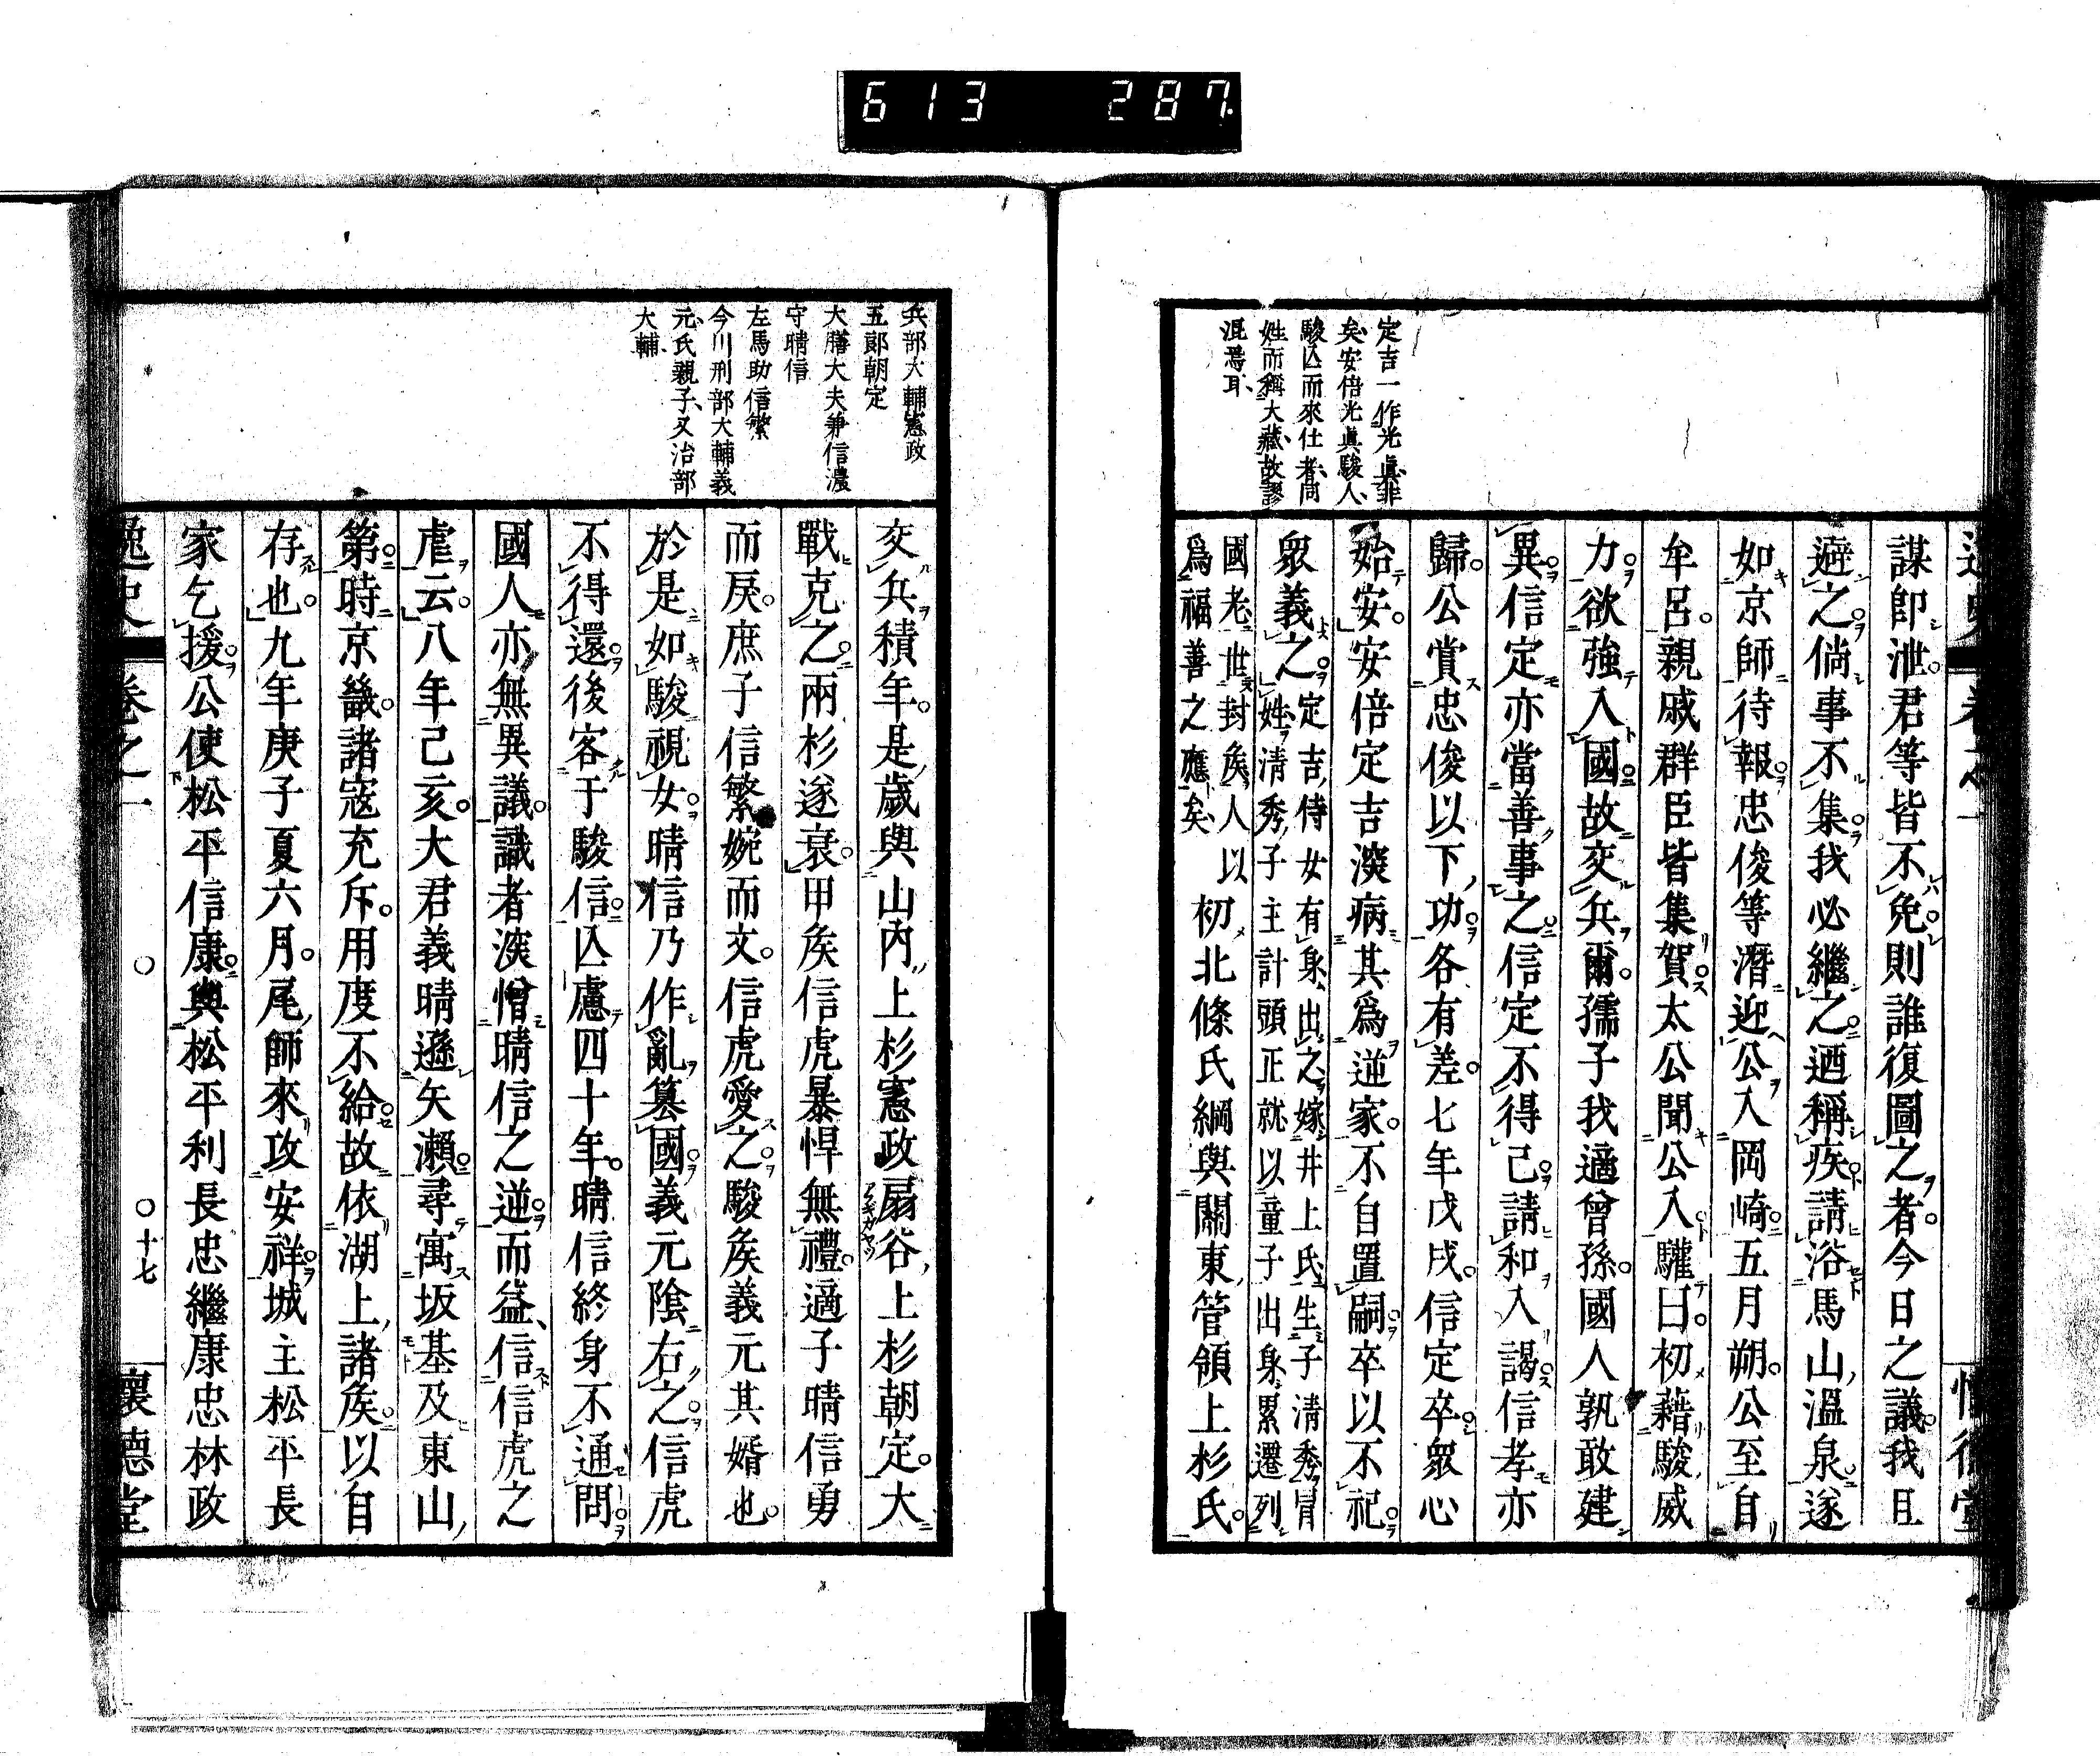 613 287
定吉一作光眞非
矣安倍光眞駿人
駿亾而來仕者同
姓而稱大藏故謬
混焉耳
謀卽泄君等皆不免則誰復圖之者今日之議我且
避之倘事不集我必繼之迺稱疾請浴馬山溫泉遂
如京師待報忠俊等潛迎公入岡崎五月朔公至自
牟呂親戚群臣皆集賀太公聞公入驩曰初藉駿威
力欲強入國故交兵爾孺子我適曾孫國人孰敢建
異信定亦當善事之信定不得已請和入謁信孝亦
歸公賞忠俊以下功各有差七年戊戌信定卒眾心
始安安倍定吉深病其爲逆家不自置嗣卒以不祀
眾義之定吉侍女有身出之嫁井上氏生子淸秀冒
姓淸秀子主計頭正就以童子出身累遷列
國老世封矦人以
爲福善之應矣
初北條氏綱與關東管領上杉氏
兵部大輔憲政
五郎朝定
大膳大夫兼信濃
守晴信
左馬助信繁
今川刑部大輔義
元氏親子又治部
大輔
交兵積年是歲與山內上杉憲政扇谷上杉朝定大
戰克之兩杉遂衰甲矦信虎暴悍無禮適子晴信勇
而戾庶子信繁婉而文信虎愛之駿矦義元其婿也
於是如駿視女晴信乃作亂簒國義元陰右之信虎
不得還後客于駿信亾慮四十年晴信終身不通問
國人亦無異議識者深憎晴信之逆而益信信虎之
虐云八年己亥大君義晴遜矢瀨尋寓坂基及東山
第時京畿諸寇充斥用度不給故依湖上諸矦以自
存也九年庚子夏六月尾師來攻安祥城主松平長
家乞援公使松平信康與松平利長忠繼康忠林政
逸史 卷之一 十七 懷德堂